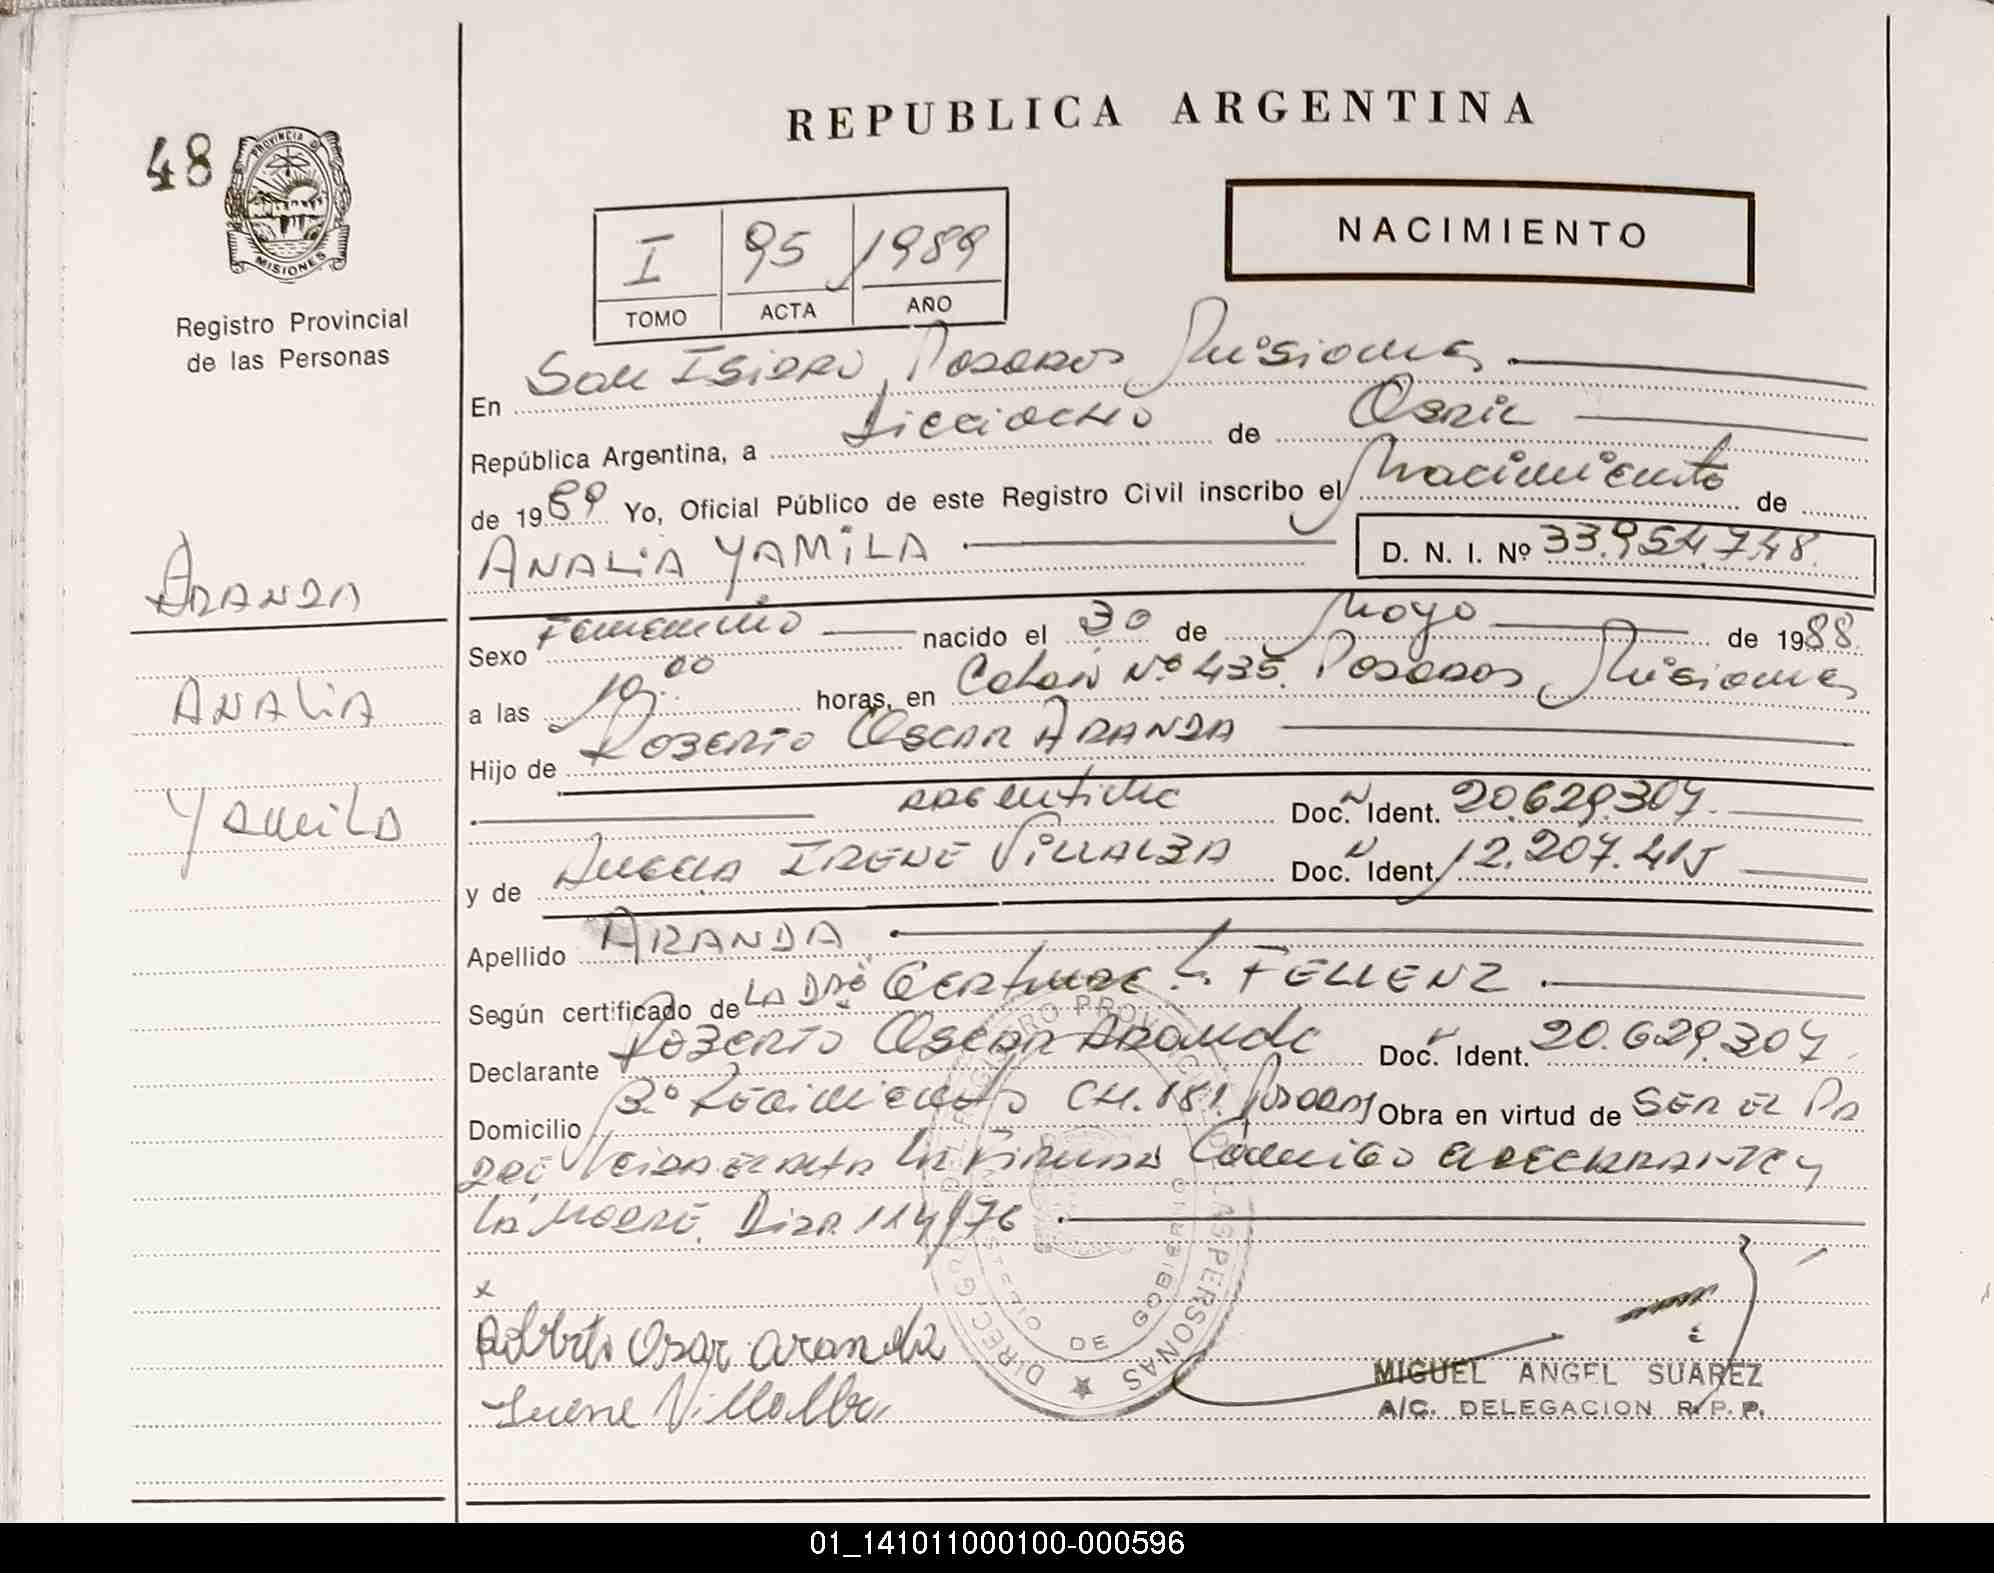 REPUBLICA ARGENTINA
48
PROVINCIA D
MISIONES
Registro Provincial
de las Personas
NACIMIENTO
I 95 1989
TOMO ACTA AÑO
En San Isidro, Posadas Misiones
República Argentina, a Dieciocho de Abril
de 1989 Yo, Oficial Público de este Registro Civil inscribo el Nacimiento de
ANALIA YAMILA D. N. I. Nº 33.954.748
ARANDA
ANALIA
Yamila
Sexo Femenino nacido el 30 de Mayo de 1988
a las 19:00 horas, en Colon Nº 435. Posadas Misiones
Hijo de Roberto Oscar ARANDA
argentino Doc. N Ident. 20.629.307
y de IRENE VILLALBA Doc. N Ident. 12.207.415
Apellido ARANDA
Según certificado de LA DRA Gertrude L. FELLENZ
Declarante Roberto Oscar Aranda Doc. N Ident. 20.629.307
Domicilio CH. 181. Posadas Obra en virtud de SER EL PA
DRE, Leida el acta la firman Conmigo el DECLARANTE y
la MADRE. 114/76
x
Roberto Oscar aranda
Irene Villalba
DIRECC. DEL REGISTRO PROVINCIAL DE LAS PERSONAS
MINIST. DE GOBIERNO
MIGUEL ANGEL SUAREZ
A/C. DELEGACION R. P. P.
01_141011000100-000596